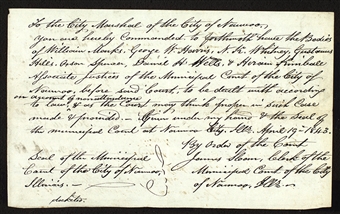 To the City Marshal of the City of Nauvoo,
You are hereby Commanded to forthwith have the Bodies
of William Marks, George W. Harris, N. K. Whitney, Gustavus
Hills, Orson Spencer, Daniel H. Wells, & Hiram Kimball
Associate Justices of the Municipal Court of the City of
Nauvoo, before said Court, to be dealt with according
on account of nonattendance
to law, & as the Court may think proper in such Case
made & provided. — Given under my hand & the Seal of
the municipal Court at Nauvoo City, Ills. April 19th 1843.
By Order of the Court
James Sloan, Clerk of the
Municipal Court of the City
of Nauvoo, Ills.
Seal of the Municipal
Court of the City of Nauvoo,
Illinois. —